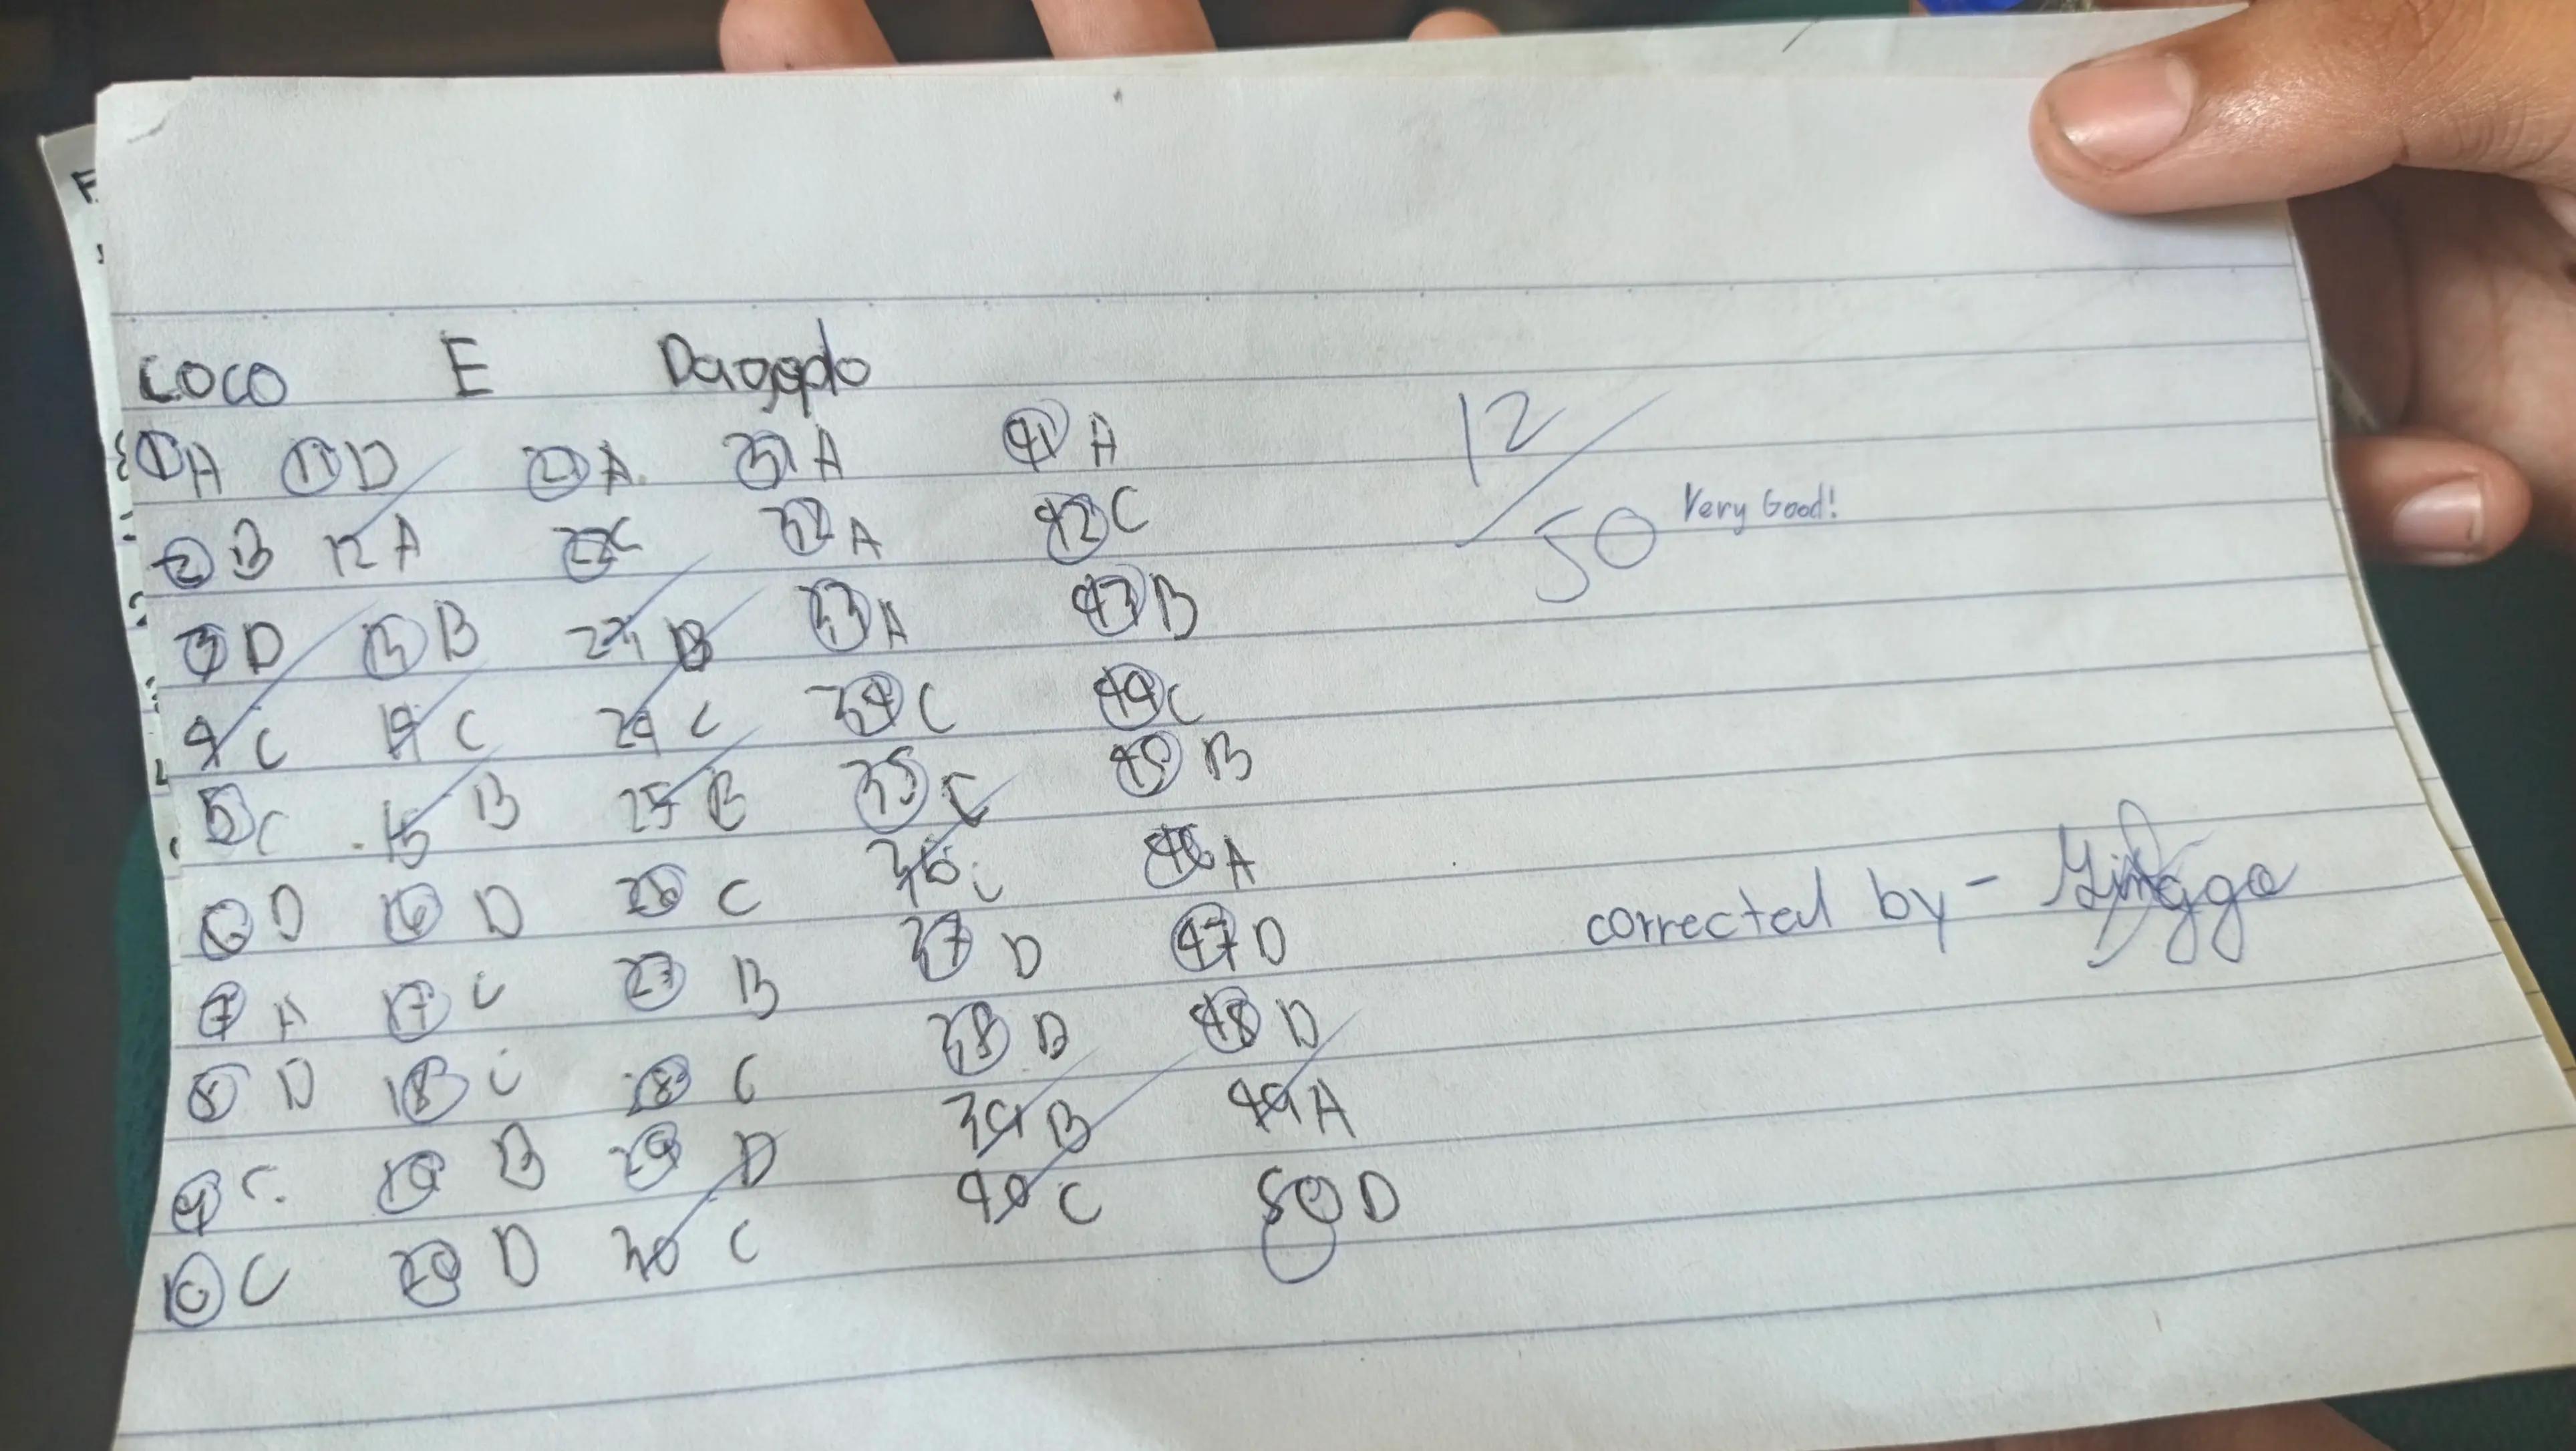 COCO E Dagopdo
1 A 11 D 21 A. 31 A 41 A
2 B 12 A 22 C 32 A 42 C
3 D 13 B 23 B 33 A 43 B
4 C 14 C 24 C 34 C 44 C
5 C 15 B 25 B 35 C 45 B
6 D 16 D 26 C 36 C 46 A
7 A 17 C 27 B 37 D 47 D
8 D 18 C 28 C 38 D 48 D
9 C. 19 B 29 D 39 B 49 A
10 C 20 D 30 C 40 C 50 D
12/50
Very Good!
corrected by -